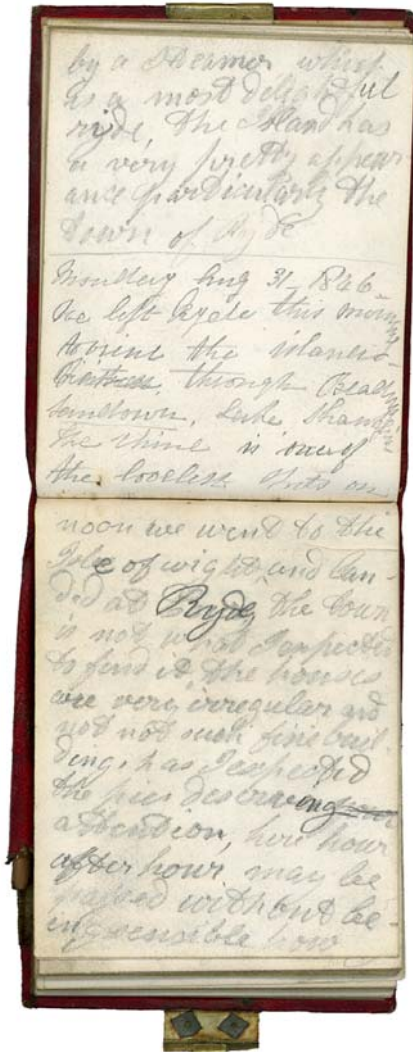 by a Steamer which
is a most delightful
ride, the Island has
a very pretty appear
ance particularly the
town of Ryde
Monday Aug 31 - 1846
We left Ryde this morning
to the island
through
Sandown, Lake Shanklin
the chine is one of
the loveliest spots on
noon we went to the
Isle of wight and lan-
ded at Ryde, the town
is not what I expected
to find it, the houses
are very irregular and
not not such fine buil
dings has I expected
the pier deserving
attention, here hour
after hour may be
passed without be-
ing sensible how